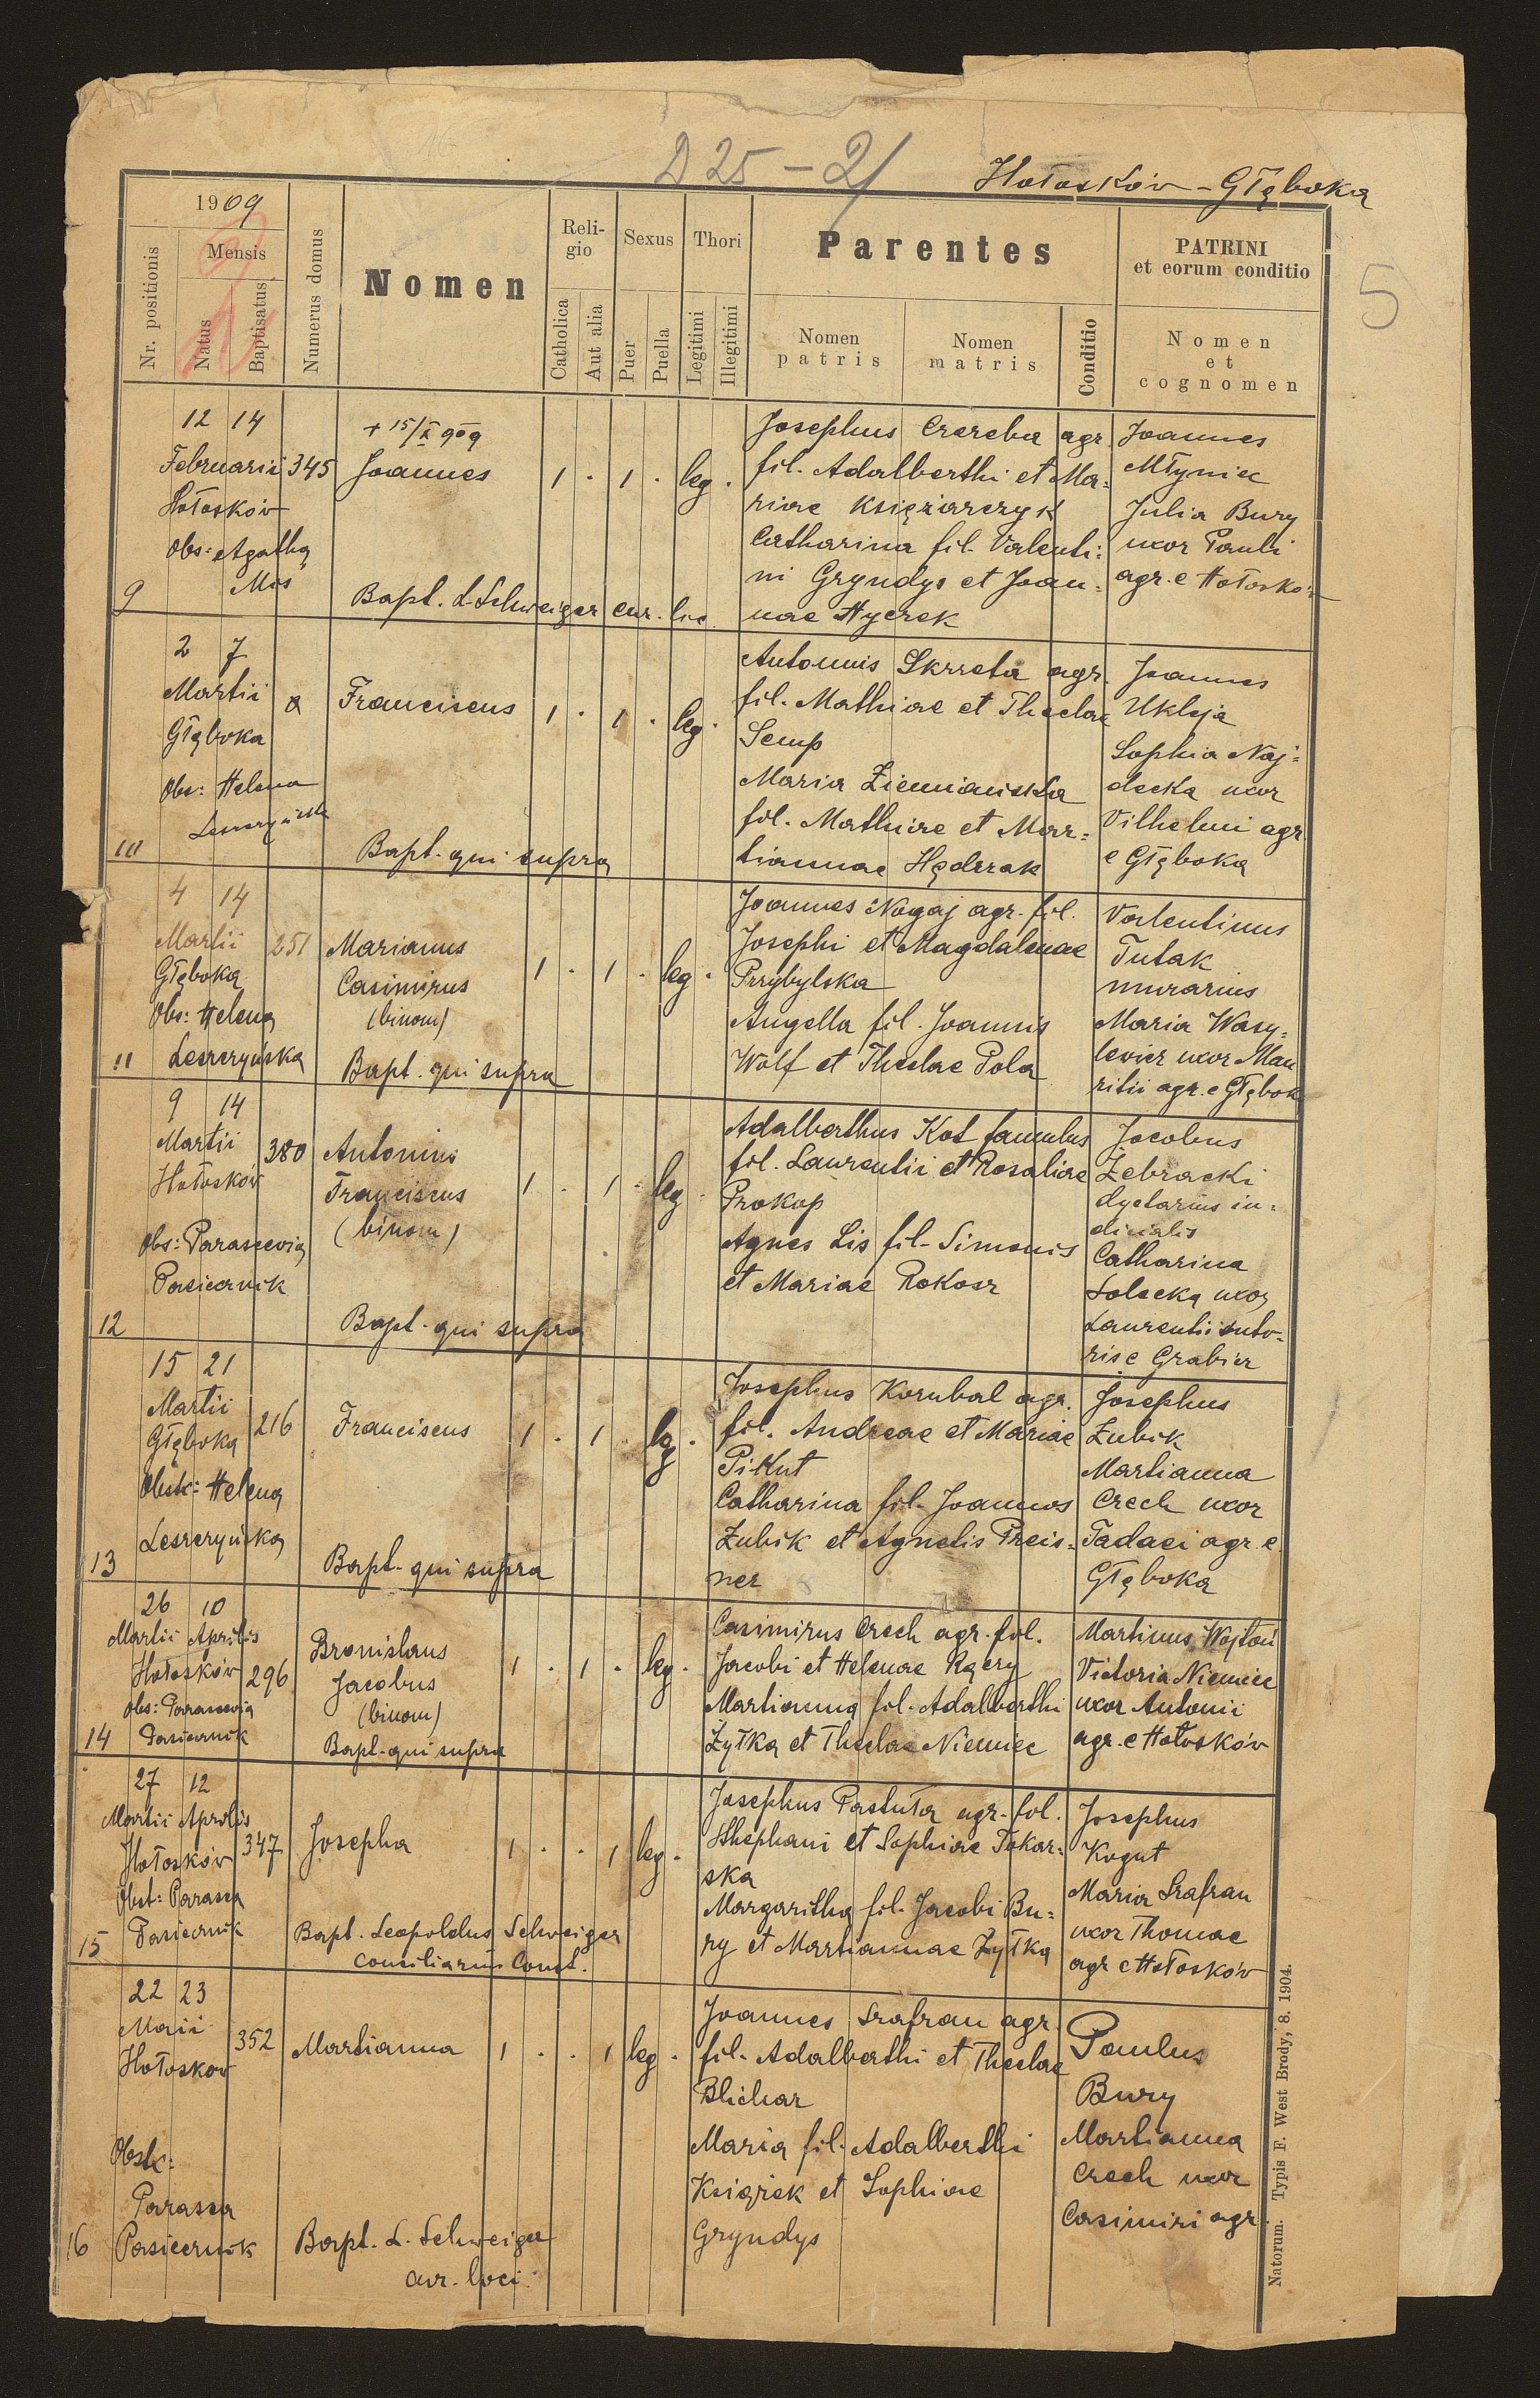 D 25 - 21
Hołosków - Głęboka
5
1909
Nr. positionis
Mensis
Natus
Baptisatus
Numerus domus
Nomen
Reli-
gio
Catholica
Aut alia
Sexus
Puer
Puella
Thori
Legitimi
Illegitimi
Parentes
Nomen
patris
Nomen
matris
Conditio
PATRINI
et eorum conditio
Nomen
et
cognomen
9
12 14
Februarii
Hołosków
Obs: Agatha
Mos
345
+ 15/X 909
Joannes
1 . 1 . leg .
Bapt. L. Schweiger cur. loc.
Josephus Czereba agr.
fil. Adalberthi et Ma=
riae Księżarczyk
Catharina fil. Valenti=
ni Gryndys et Joan=
nae Hyczek
Joannes
Młyniec
Julia Bury
uxor Pauli
agr. e Hołosków
10
2 7
Martii
Głęboka
Obs: Helena
Leszczyńska
Franciscus
1 . 1 . leg .
Bapt. qui supra
Antonius Skrzeta agr.
fil. Mathiae et Theclae
Semp
Maria Ziemiańska
fil. Mathiae et Mar=
tiannae Hędrzak
Joannes
Ukleja
Sophia Naj=
decka uxor
Vilhelmi agr.
e Głęboka
11
4 14
Martii
Głęboka
Obs: Helena
Leszczyńska
251
Marianus
Casimirus
(binom)
1 . 1 . leg .
Bapt. qui supra
Joannes Nogaj agr. fil.
Josephi et Magdalenae
Przybylska
Angella fil. Joannis
Wolf et Theclae Pola
Valentinus
Tutak
murarius
Maria Wasy=
lewicz uxor Mau
ritii agr. e Głębok
12
9 14
Martii
Hołosków
Obs: Parascevia
Pasicznik
380
Antonius
Franciscus
(binom)
1 . 1 . leg .
Bapt. qui supra
Adalberthus Kot famulus
fil. Laurentii et Rosaliae
Prokop
Agnes Lis fil. Simonis
et Mariae Rokosz
Jacobus
Żebracki
dyetarius iu=
dicialis
Catharina
Solecka uxor
Laurentii suto=
ris e Grabicz
13
15 21
Martii
Głęboka
Obstr: Helena
Leszczyńska
216
Franciscus
1 . 1 . leg .
Bapt. qui supra
Josephus Kornbal agr.
fil. Andreae et Mariae
Pikut
Catharina fil. Joannos
Zubik et Agnetis Preis=
ner
Josephus
Zubik
Martianna
Czech uxor
Tadaei agr. e
Głęboka
14
26 10
Martii Aprilis
Hołosków
Obs: Parascevia
Pasicznik
296
Bronislaus
Jacobus
(binom)
1 . 1 . leg .
Bapt. qui supra
Casimirus Czech agr. fil.
Jacobi et Helenae Rączy
Martianna fil. Adalberthi
Żyłka et Theclae Niemiec
Martinus Wojtoń
Victoria Niemiec
uxor Antonii
agr. e Hołosków
15
27 12
Martii Aprilis
Hołosków
Obst: Parasca
Pasicznik
347
Josepha
1 . . 1 leg .
Bapt. Leopoldus Schweiger
consiliarius Const.
Josephus Pastuła agr. fil.
Sthephani et Sophiae Tokar=
ska
Margaritha fil. Jacobi Bu=
ry et Martiannae Żyłka
Josephus
Kogut
Maria Szafran
uxor Thomae
agr e Hołosków
16
22 23
Maii
Hołosków
Obstr:
Parasca
Pasicznik
352
Martianna
1 . . 1 leg .
Bapt. L. Schweiger
cur. loci.
Joannes Szafran agr.
fil. Adalberthi et Theclae
Blichar
Maria fil. Adalberthi
Książek et Sophiae
Gryndys
Paulus
Bury
Martianna
Czech uxor
Casimiri agr.
Natorum. Typis F. West Brody, 8. 1904.